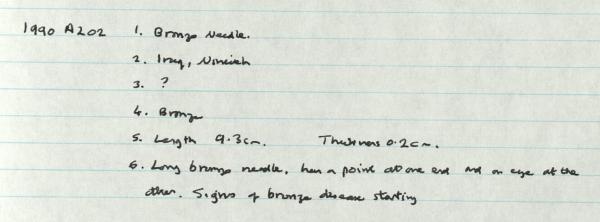 1990 A202 1. Bronze Needle.
2. Iraq, Nineveh
3. ?
4. Bronze
5. Length 9.3cm. Thickness 0.2cm.
6. Long bronze needle, has a point at one end and an eye at the
other. Signs of bronze disease starting